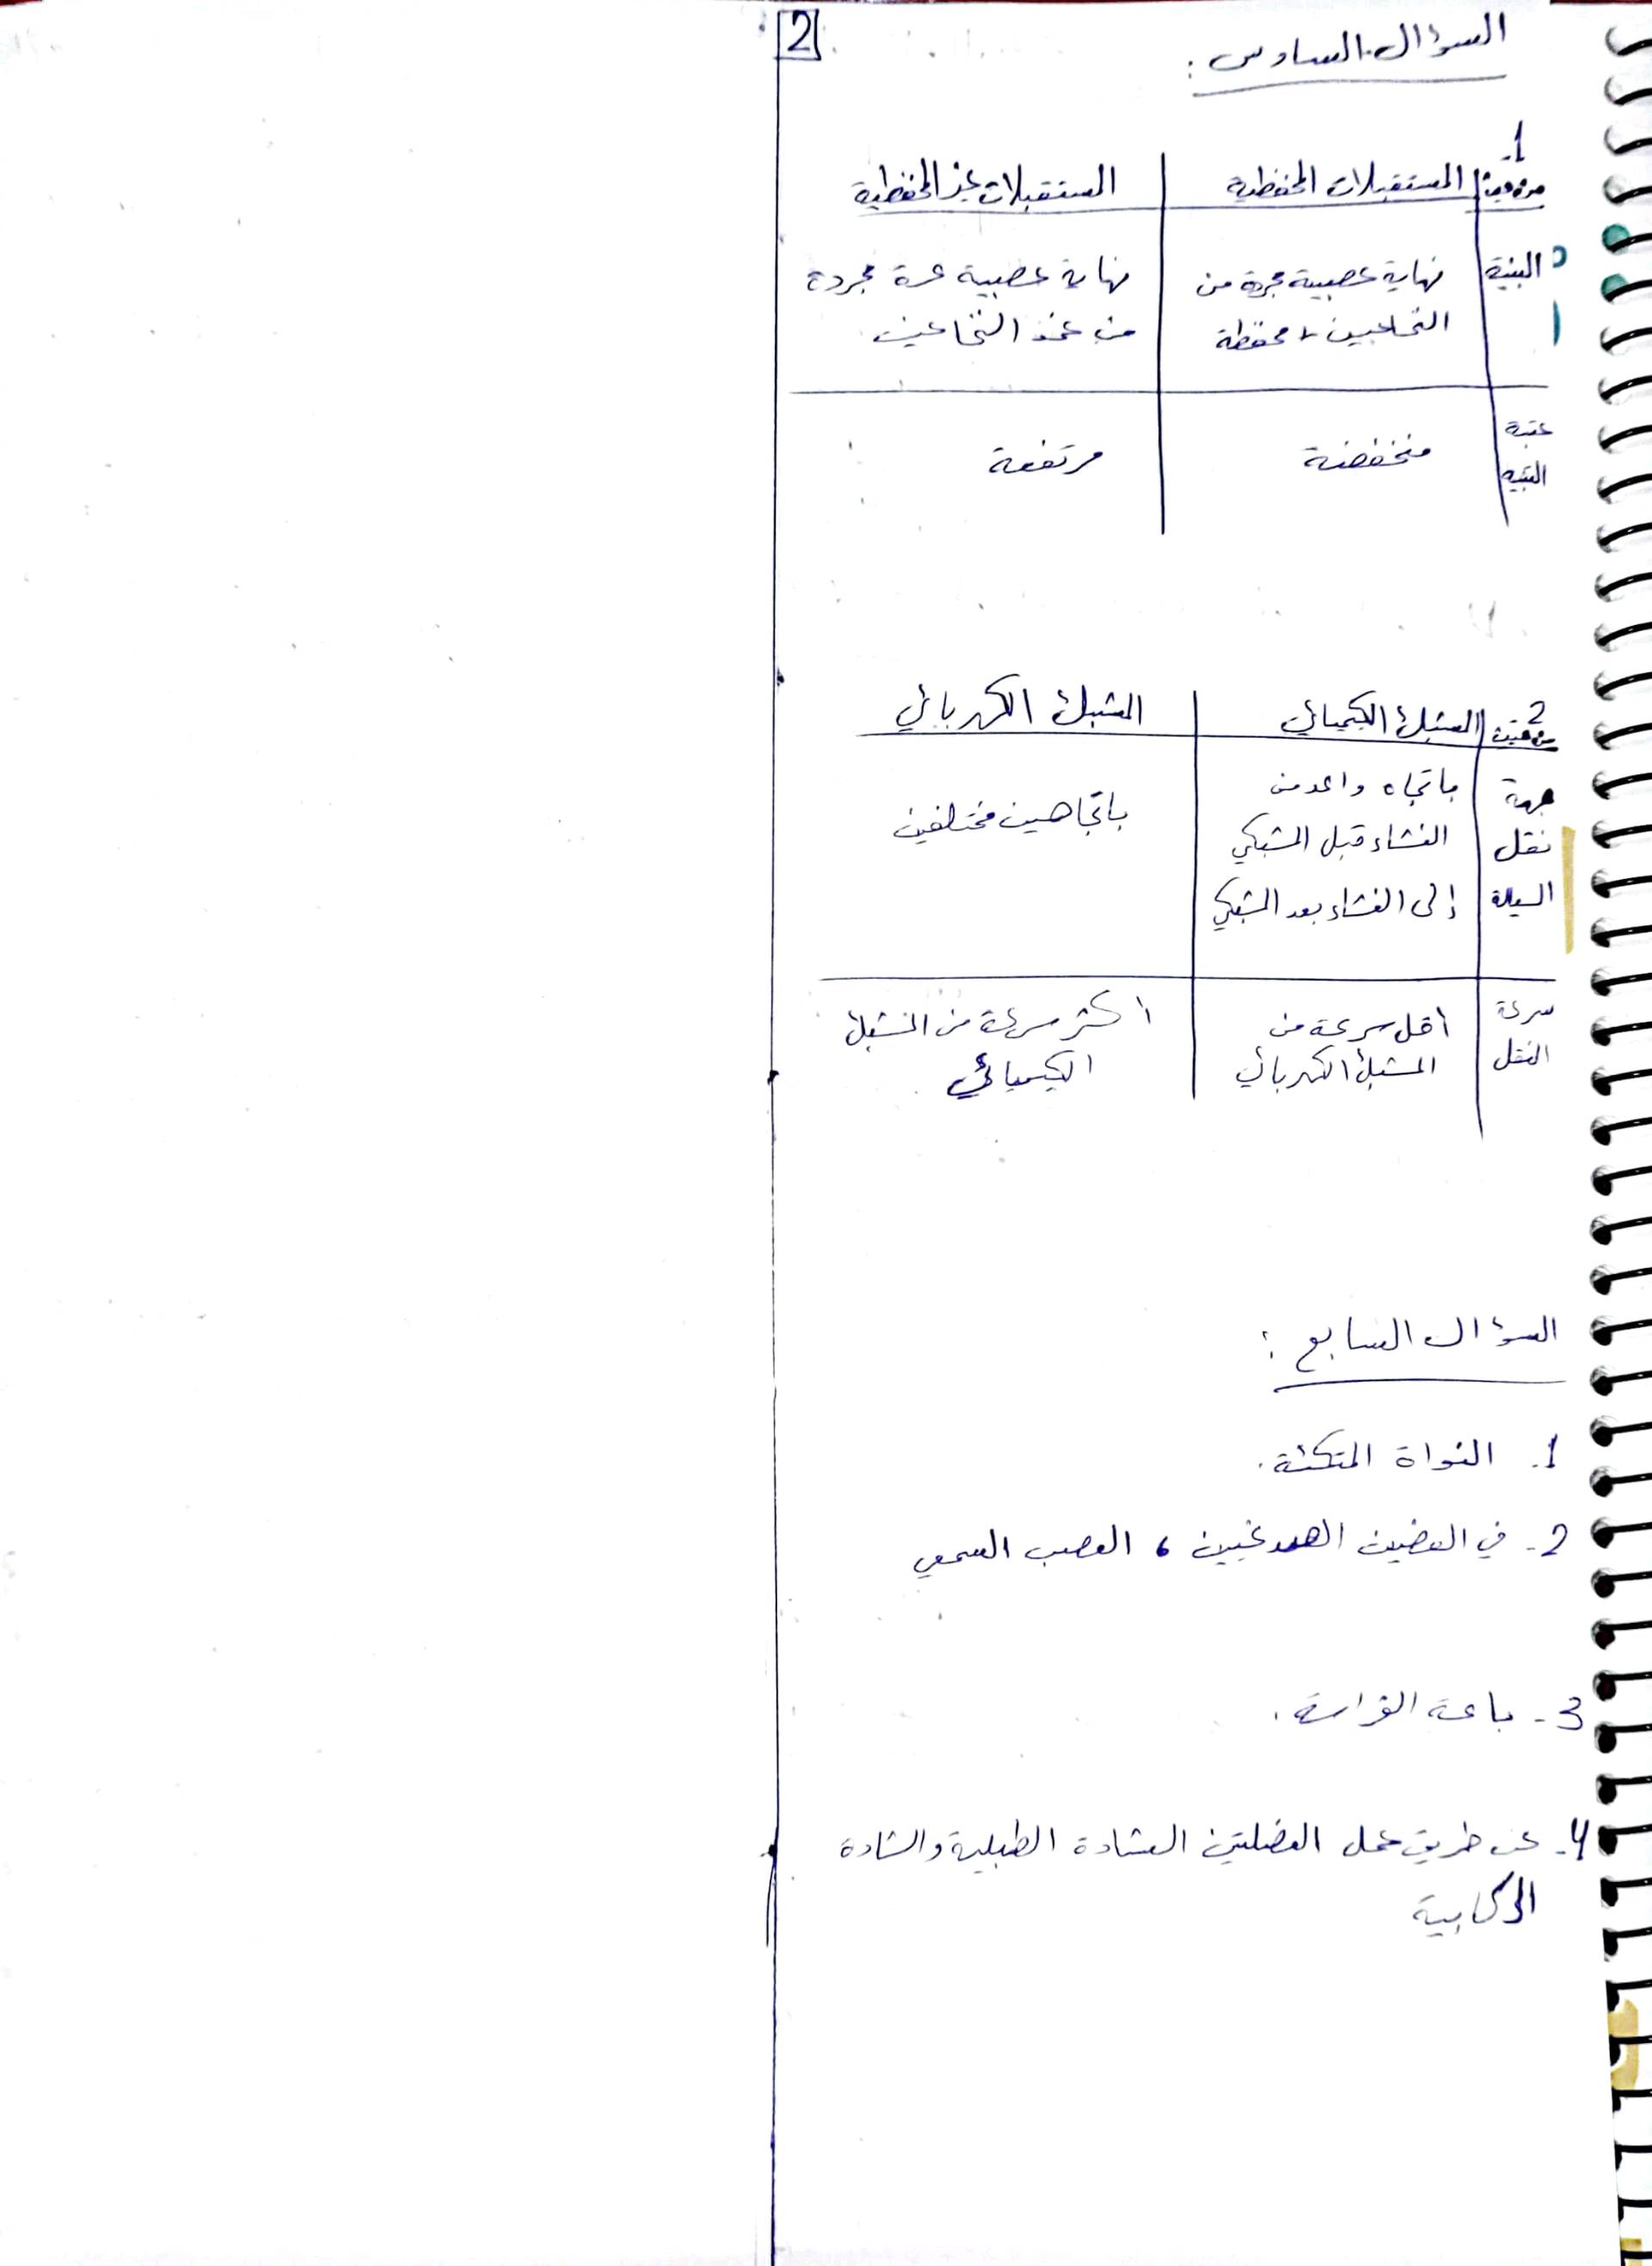 2
السؤال السادس :
1.
من حيث | المستقبلات المحفظية | المستقبلات غير المحفظية
البنية | نهاية عصبية مجردة من | نهاية عصبية حرة مجردة
النخاعين + محفظة | من غمد النخاعين
عتبة | منخفضة | مرتفعة
التنبيه
2
من حيث | المشبك الكيميائي | المشبك الكهربائي
جهة | باتجاه واحد من | باتجاهين مختلفين
نقل | الغشاء قبل المشبكي
السيالة | إلى الغشاء بعد المشبكي
سرعة | أقل سرعة من | أكثر سرعة من المشبك
النقل | المشبك الكهربائي | الكيميائي
السؤال السابع :
1. النواة المتكئة.
2- في الفصين الصدغيين ، العصب السمعي
3- باحة الفراسة.
4- عن طريق عمل العضلتين الشادة الطبلية والشادة
الركابية